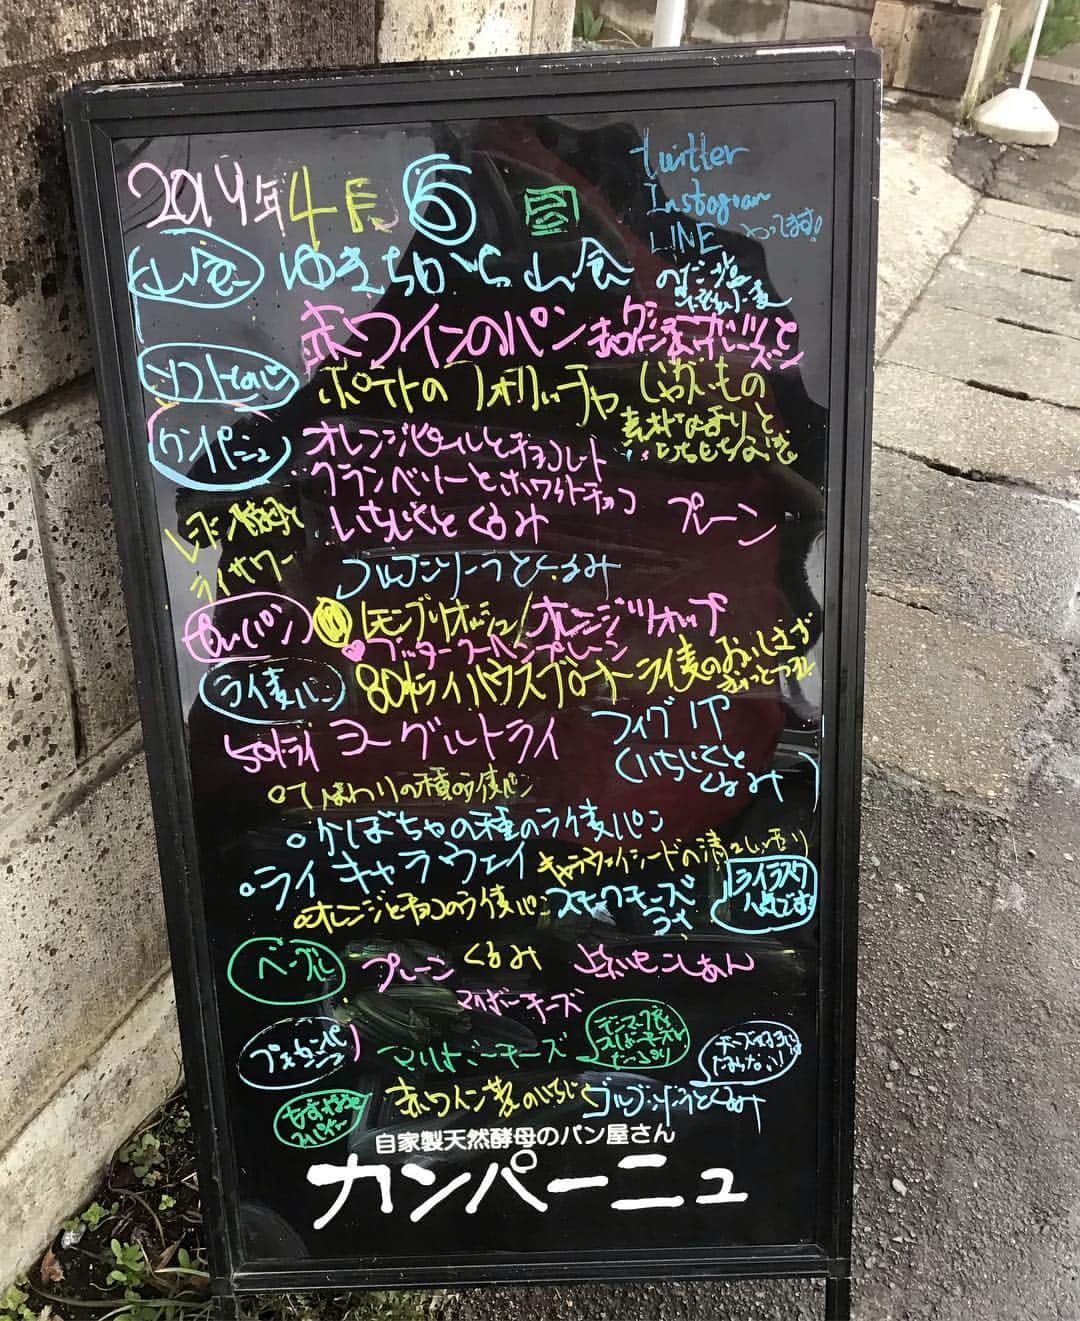 2014年4月6日
twitter
Instagram
LINE やってます!
山食 ゆきちから山食
赤ワインのパン
ソフトせみ ポテトのフォカッチャ じゃがいもの
カンパーニュ オレンジピールとチョコレート
クランベリーとホワイトチョコ
いちじくとくるみ プレーン
レーズン酵母と
ライサワー
ゴルゴンゾーラとくるみ
レモンブリオッシュ/オレンジブリオッシュ
プレーン
ライ麦パン 80%ライハウスブロート ライ麦のおいしさが
ぎゅっとつまった
50%ライ ヨーグルトライ フィグノア
(いちじくと
くるみ)
ひまわりの種のライ麦パン
かぼちゃの種のライ麦パン
ライキャラウェイ キャラウェイシードの清々しい香り
オレンジとチョコのライ麦パン スモークチーズ
ライ
ライラスク
人気です!
ベーグル プレーン くるみ
マリボーチーズ
マリボーチーズ
デンマーク産
マリボーチーズ
たっぷり
チーズ好きには
たまらない!
赤ワイン煮のいちじく ゴルゴンゾーラとくるみ
自家製天然酵母のパン屋さん
カンパーニュ